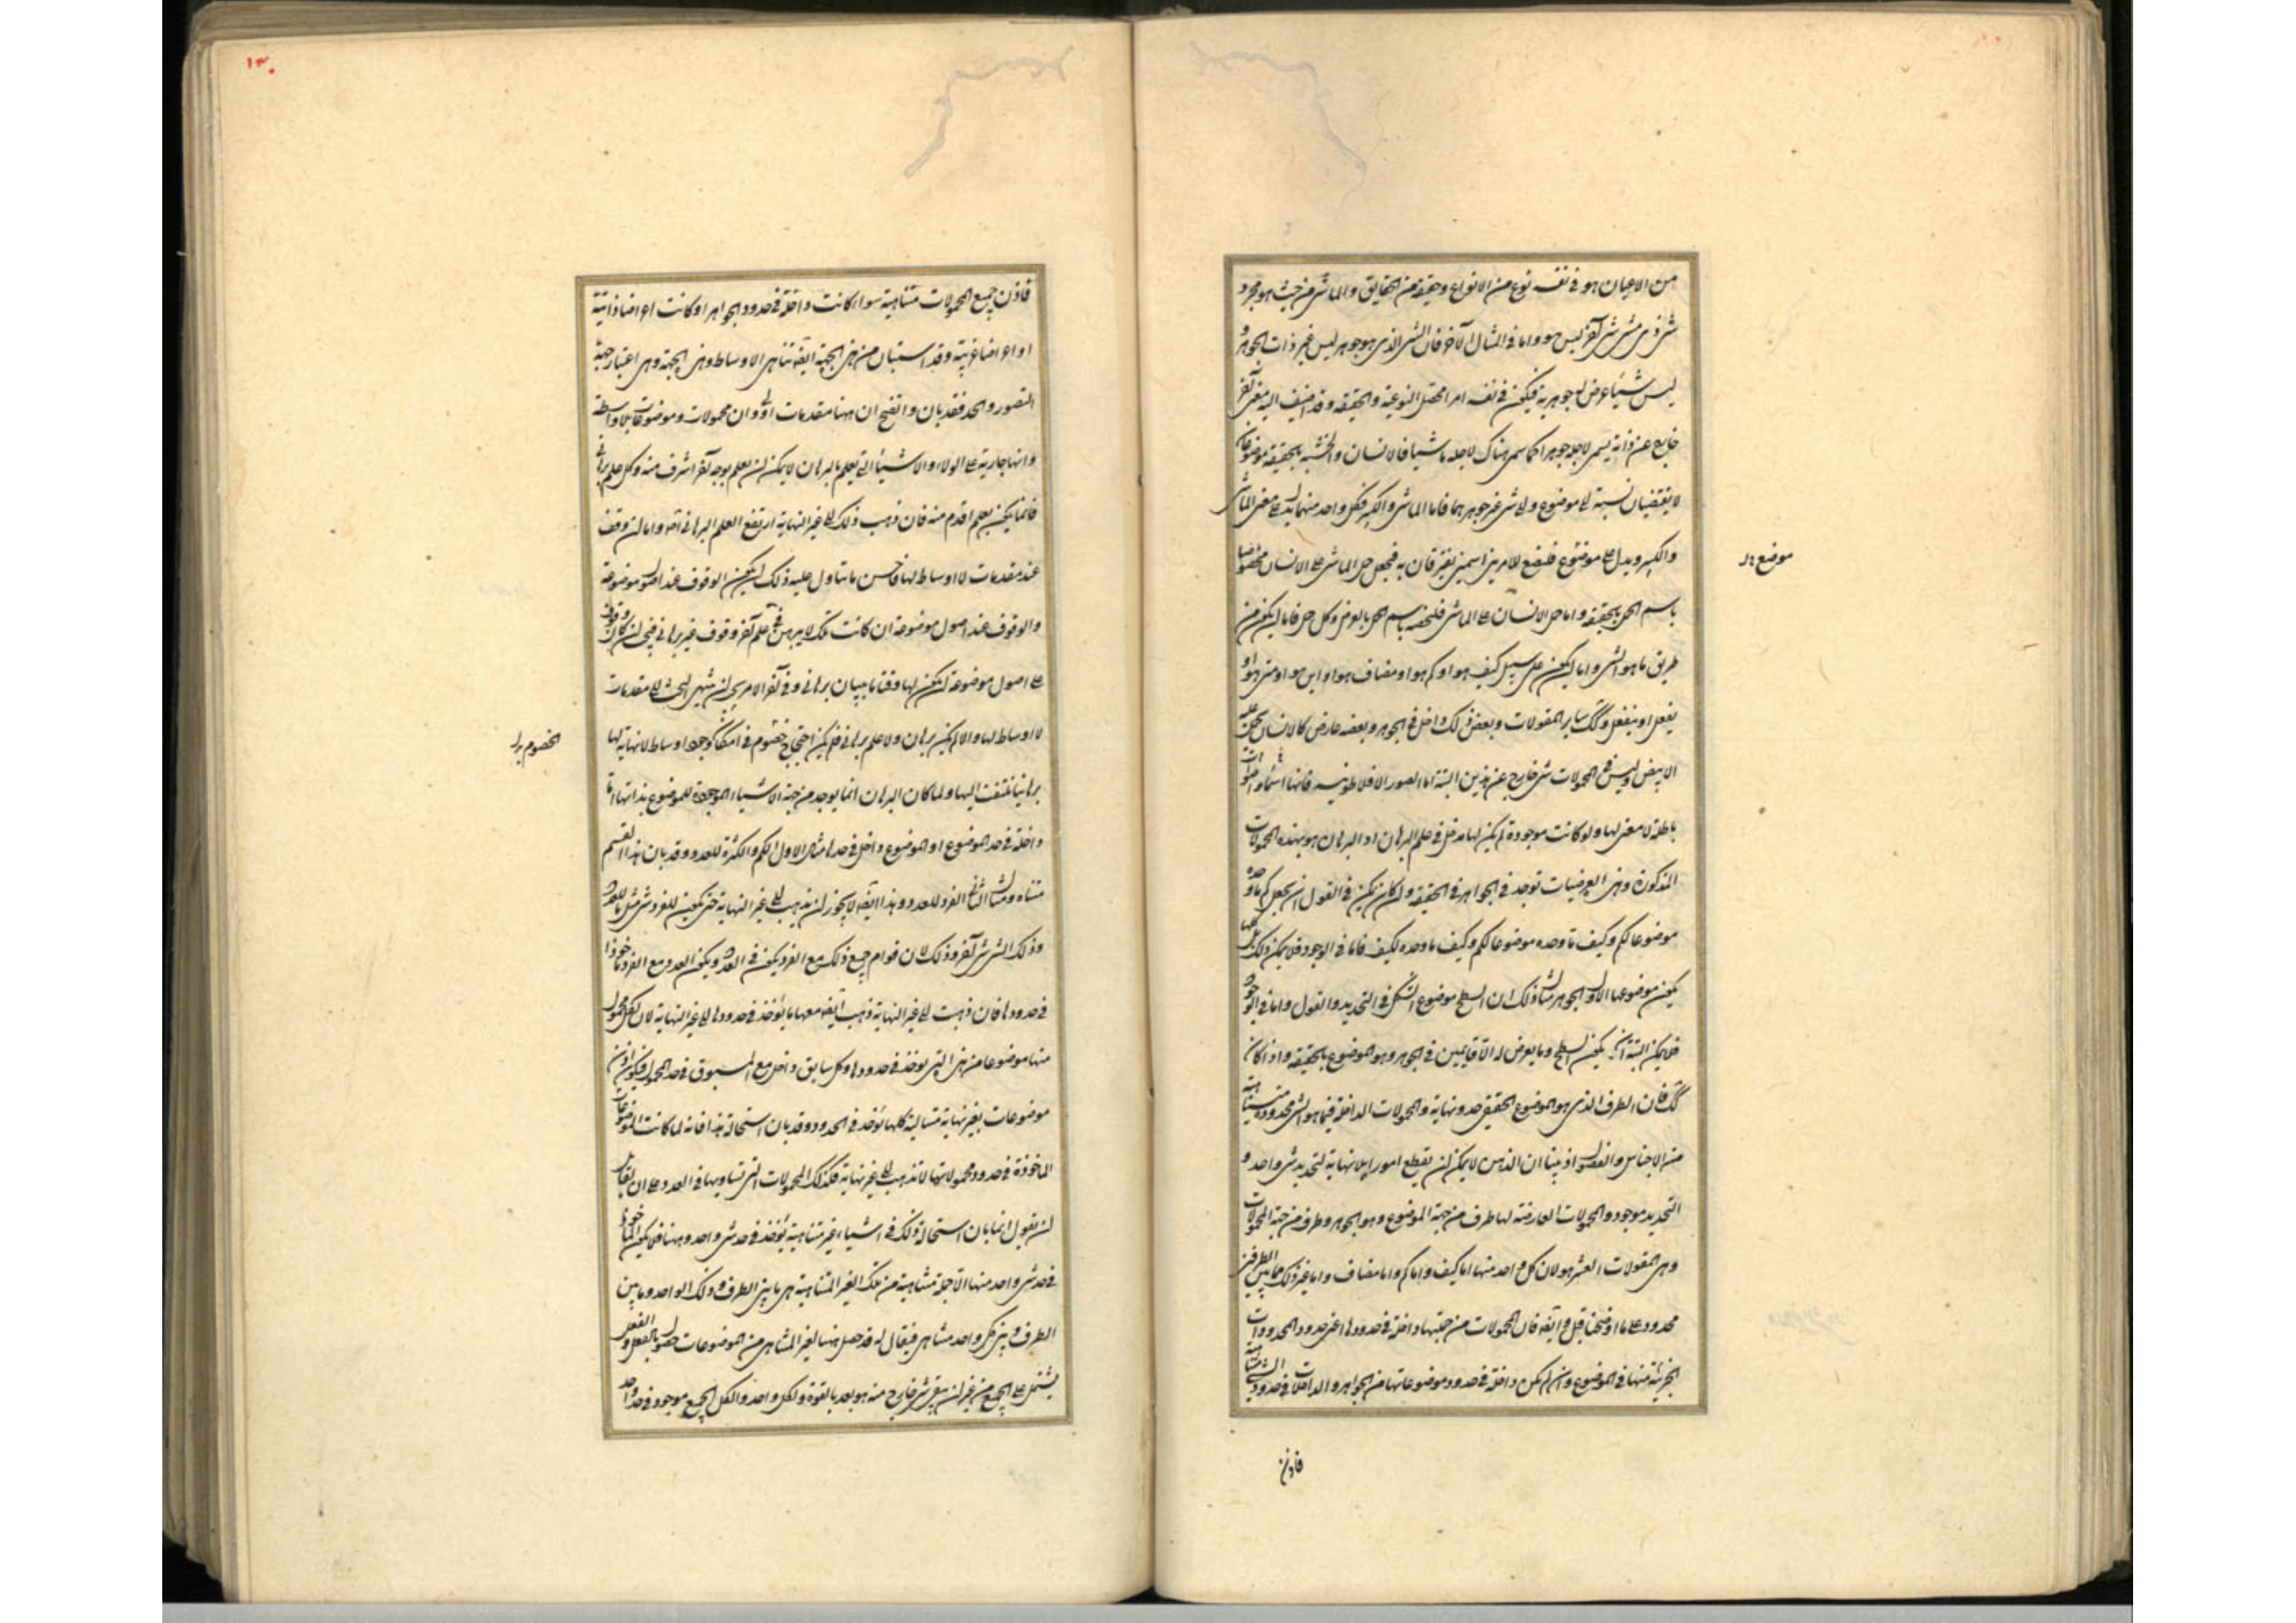 من الاعيان هو فى نفسه نوع من الانواع وحقيقة من الحقايق والماشى من حيث هو مجرد
شئ ذى مشى شئ آخر ليس هو واما فى المثال الآخر فان الشئ الذى هو جوهر ليس غير ذات الجوهر و
ليس شيئا عرض له جوهرية فيكون فى نفسه امرا محصل النوعية والحقيقة وقد اضيف اليه معنى آخر
خارج عن ذاته يسمى لاجله جوهرا كما سمى هناك لاجله ماشيا فالانسان والخشبة بالحقيقة موضوعان
لا يقتضيان نسبة الى موضوع ولا شئ غير جوهرهما فاما الماشى والكبير فكل واحد منهما يدل على معنى الماشى
والكبير ويدل على موضوع فلنضع للامرين اسمين يفترقان به فنجعل حمل الماشى على الانسان مخصوصا
باسم الحمل بالحقيقة واما حمل الانسان على الماشى فلنخصه باسم الحمل بالعرض وكل حمل فاما ان يكون من
طريق ما هو الشئ واما ان يكون على سبيل كيف هو او كم هو او مضاف هو او اين هو او متى هو او
يفعل او ينفعل وكك ساير المقولات وبعض ذلك داخل فى الجوهر وبعضه عارض كالانسان يحمل عليه
الابيض وليس فى المحمولات شئ خارج عن هذين البتة اما الصور الافلاطونية فانها اسماء واصوات
باطلة لا معنى لها ولو كانت موجودة لم يكن لها مدخل فى علم البرهان اذ البرهان هو بهذه المحمولات
المذكورة وهذه العرضيات توجد فى الجواهر فى الحقيقة وان كان يمكن فى القول ان يجعل كم ما وحده
موضوعا لكم وكيف ما وحده موضوعا لكم وكيف ما وحده لكيف فاما فى الوجود فلا يمكن ذلك بل كلها
يكون موضوعها الاول الجوهر مثال ذلك ان السطح موضوع الشكل فى التحديد والقول واما فى الوجود
فلا يمكن البتة ان يكون السطح وما يعرض له الا قايمين فى الجوهر وهو الموضوع بالحقيقة واذا كان
كك فان الطرف الذى هو الموضوع الحقيقى حد ونهاية والمحمولات الداخلة فيما هو الشئ محدودة متناهية
من الاجناس والفصول اذ بينا ان الذهن لا يمكن ان يقطع امورا بلا نهاية لتحديد شئ واحد و
التحديد موجود والمحمولات العارضة لها طرف من جهة الموضوع وهو الجوهر وطرف من جهة المحمولات
وهى المقولات العشر هو لان كل واحد منها اما كيف واما كم واما مضاف واما غير ذلك فما بين الطرفين
محدود على ما اوضحنا قبل وايضا فان المحمولات من جنبتها داخلة فى حدودها اعنى حدود المحدودات
الجزئية منها فى الموضوع وان لم تكن داخلة فى حدود موضوعاتها من الجواهر والداخلات فى حدود الشئ متناهية
موضع بدل
فاذن
١٣٠
فاذن جميع المحمولات متناهية سواء كانت داخلة فى حدود الجواهر او كانت اعراضا ذاتية
او اعراضا غريبة وقد استبان من هذه الجهة ايضا تناهى الاوساط وهذه الجهة وهى اعتبار جهة
التصور والحد فقد بان واتضح ان ههنا مقدمات اولى وان محمولات وموضوعات بلا واسطة
وانها جارية على الولاء والاشياء التى تعلم بالبرهان لا يمكن ان تعلم بوجه آخر اشرف منه وكل علم برهانى
فانما يكون بعلم اقدم منه فان ذهب ذلك الى غير النهاية ارتفع العلم البرهانى اصلا واما ان وقف
عند مقدمات لا اوساط لها فاحسن ما يتاول عليه ذلك ان يكون الوقوف عند اصول موضوعة
والوقوف عند اصول موضوعة ان كانت تلك لا يبرهن فى علم آخر وقوف غير برهانى فينبغى ان كان وقوف
على اصول موضوعة ان يكون لها وقتا ما بيان برهانى وفى آخر الامر يجب ان ينتهى البحث الى مقدمات
لا اوساط لها والا لم يكن برهان ولا علم برهانى فلم يكن احتجاج خصوم فى امكان وجود اوساط لا نهاية لها
برهانيا يلتفت اليها ولما كان البرهان انما يوجد من جهة الاشياء الموجودة للموضوع بذاتها اما
داخلة فى حد الموضوع او الموضوع داخل فى حدها مثال الاول الكم والكثرة للعدد وقد بان هذا القسم
متناه ومثال الثانى الفرد للعدد وهذا ايضا لا يجوز ان يذهب الى غير النهاية حتى يكون للفرد شئ مثل ما للعدد
وذلك الشئ شئ آخر وذلك لان قوام جميع ذلك مع الفرد يكون فى العدد ويكون العدد مع الفرد ماخوذا
فى حدودها فان ذهبت الى غير النهاية ذهب ايضا معها ما يؤخذ فى حدودها الى غير النهاية لان لكل محمول
منها موضوعا من هذه التى توخذ فى حدودها وكل سابق داخل مع المسبوق فى حد المحمول فيكون اذن
موضوعات بغير نهاية متتالية كلها توخذ فى الحدود وقد بان استحالة هذا فانه لما كانت الموضوعات
الماخوذة فى حدود محمولاتها لا تذهب الى غير نهاية فكذلك المحمولات التى تساويها فى العدد على ان لقائل
ان يقول انما بان استحالة ذلك فى اشياء غير متناهية يؤخذ فى حد شئ واحد وههنا فلا يكون الماخوذ
فى حد شئ واحد منها الا جملة متناهية من تلك الغير المتناهية هى ما بين الطرف وذلك الواحد وما بين
الطرف وبين كل واحد متناهى فيقال له قد حصل ههنا لغير المتناهى من الموضوعات حصول بالفعل والفعل
يشتمل على الجميع من غير ان يبقى شئ خارج منه هو بعد بالقوة ولكل واحد والكل الجميع موجود فى حد واحد
الخصوم بدل